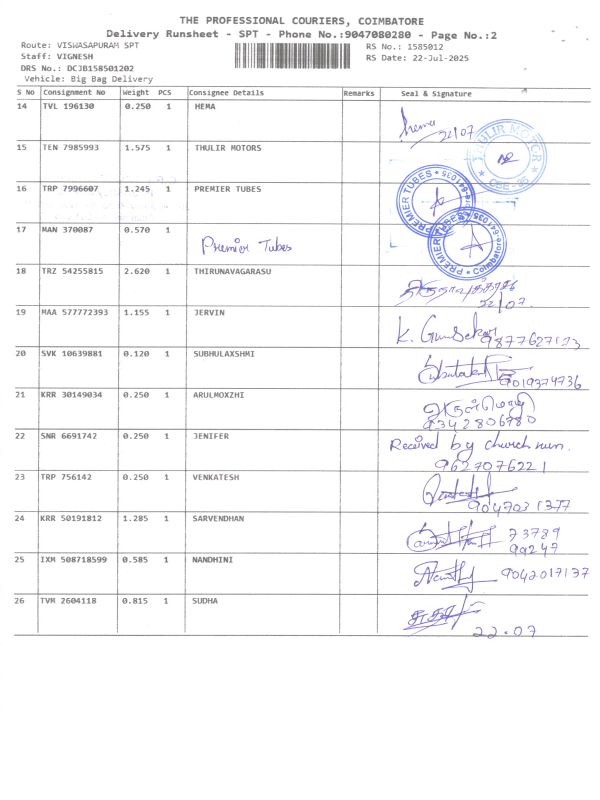 THE PROFESSIONAL COURIERS, COIMBATORE
Delivery Runsheet - SPT - Phone No.:9047080280 - Page No.:2
Route: VISWASAPURAM SPT RS No.: 1585012
Staff: VIGNESH RS Date: 22-Jul-2025
DRS No.: DCJB158501202
Vehicle: Big Bag Delivery
S No Consignment No Weight PCS Consignee Details Remarks Seal & Signature
14 TVL 196130 0.250 1 HEMA
hema 22/07
15 TEN 7985993 1.575 1 THULIR MOTORS
THULIR MOTOR
16 TRP 7996607 1.245 1 PREMIER TUBES
PREMIER TUBES
17 MAN 370087 0.570 1
Premier Tubes PREMIER TUBES Coimbatore
18 TRZ 54255815 2.620 1 THIRUNAVAGARASU
22/07.
19 MAA 577772393 1.155 1 JERVIN
K. Gunsekar 9877627123
20 SVK 10639881 0.120 1 SUBHULAXSHMI
9019374736
21 KRR 30149034 0.250 1 ARULMOXZHI
அருள்மொழி
9342806780
22 SNR 6691742 0.250 1 JENIFER Received by church nun.
9627076221
23 TRP 756142 0.250 1 VENKATESH
9047031377
24 KRR 50191812 1.285 1 SARVENDHAN
73789
99247
25 IXM 508718599 0.585 1 NANDHINI
9042017137
26 TVM 2604118 0.815 1 SUDHA
சுதா
22.07